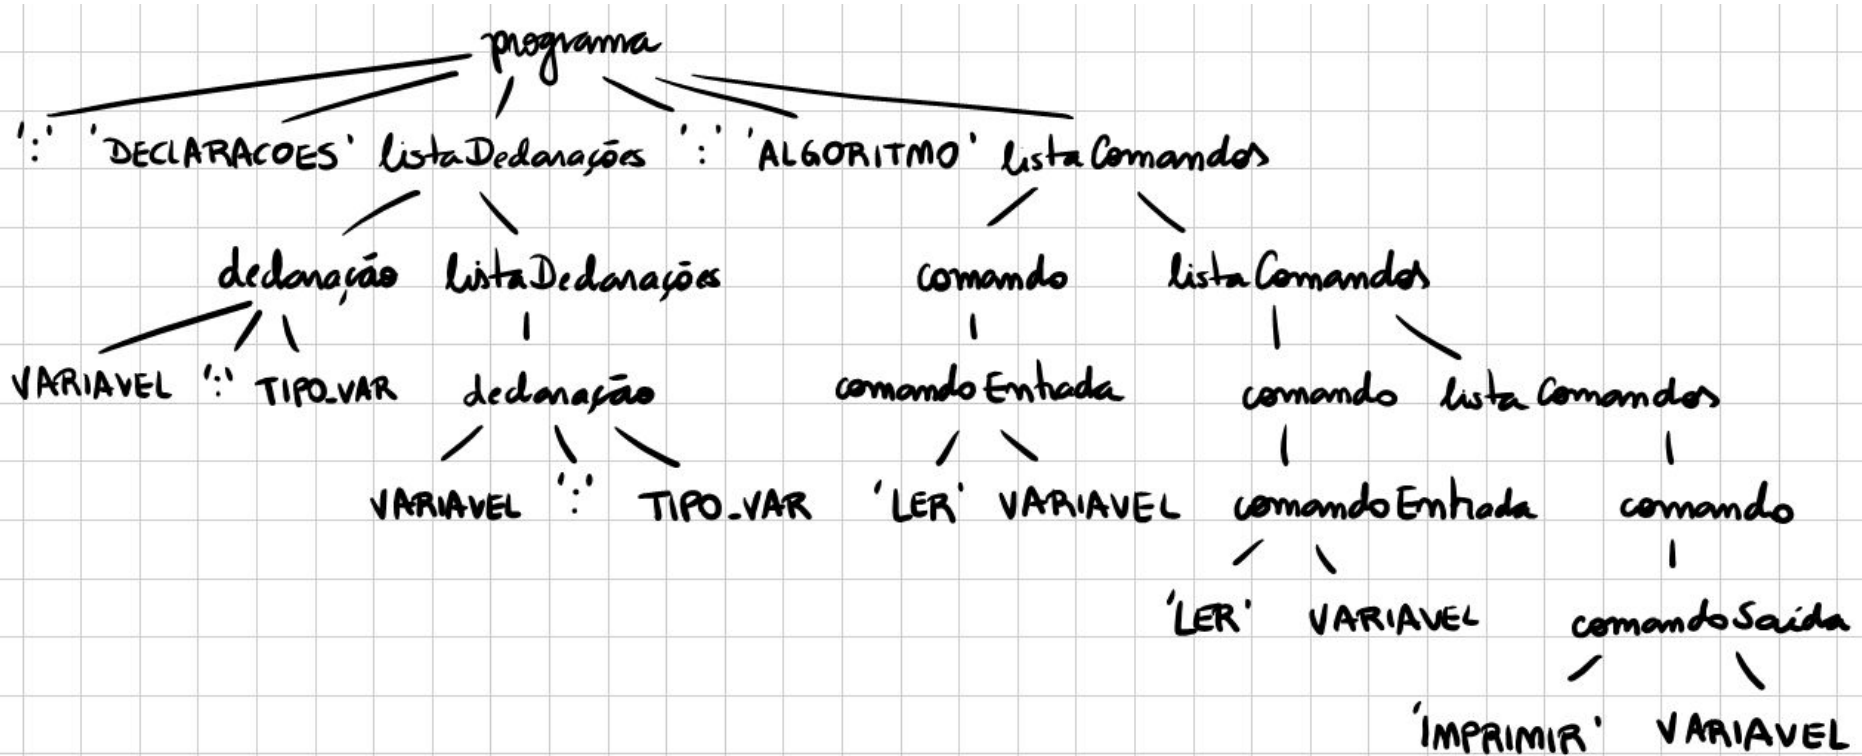 programa
':' 'DECLARACOES' listaDeclarações ':' 'ALGORITMO' listaComandos
declaração listaDeclarações comando listaComandos
VARIAVEL ':' TIPO_VAR declaração comandoEntrada comando listaComandos
VARIAVEL ':' TIPO_VAR 'LER' VARIAVEL comandoEntrada comando
'LER' VARIAVEL comandoSaída
'IMPRIMIR' VARIAVEL